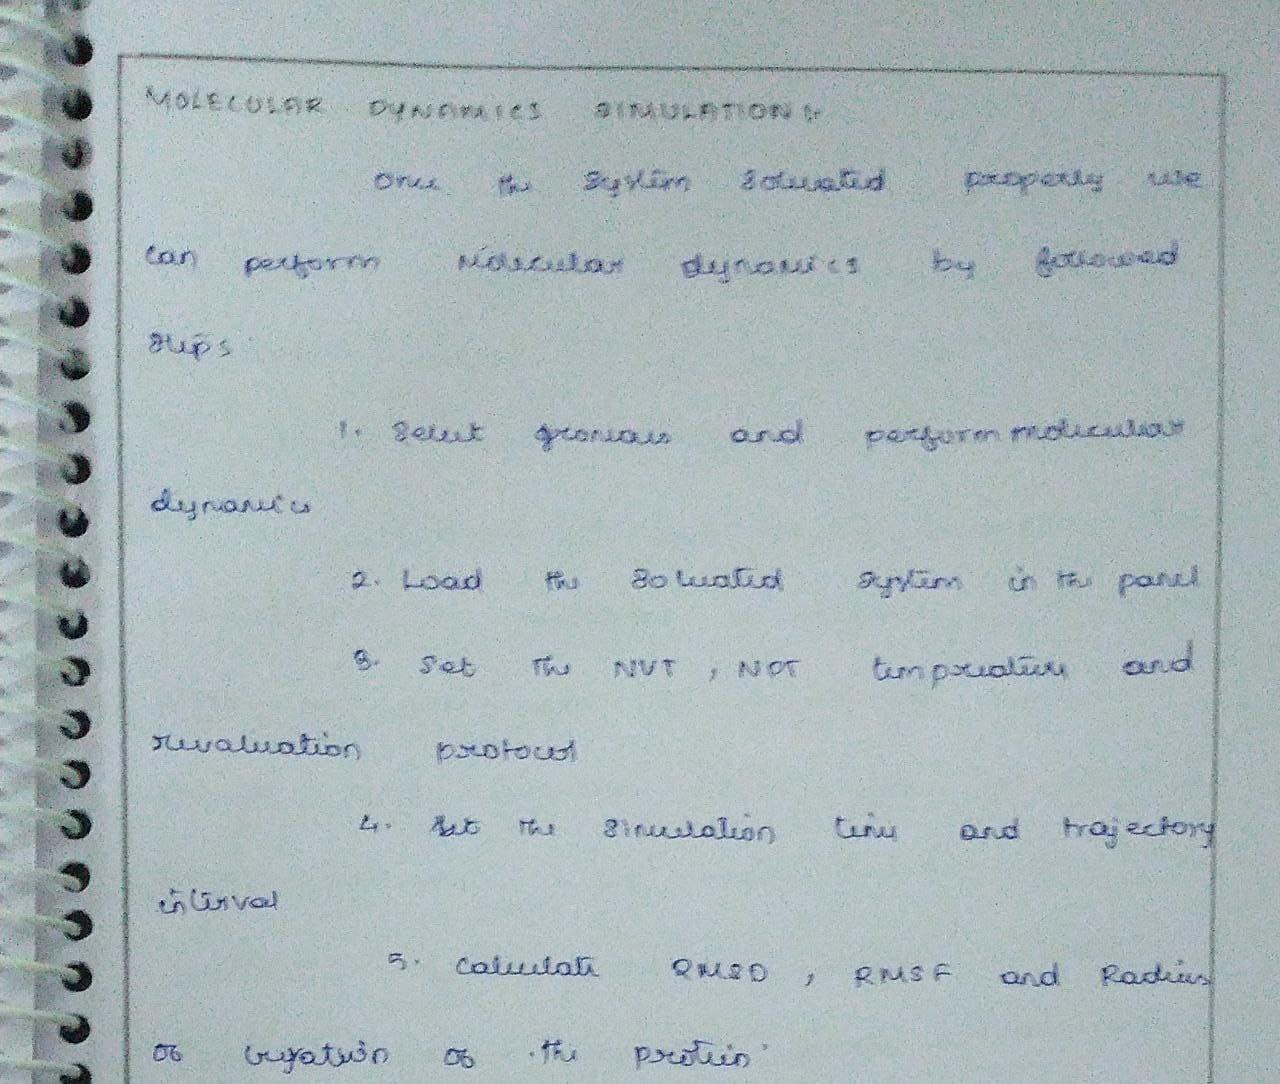 MOLECULAR DYNAMICS SIMULATION:-
Once the System Solvated properly we
can perform Molecular dynamics by followed
Steps
1. Select and perform molecular
dynamics
2. Load the Solvated System in the panel
3. Set the NVT, NPT temperature and
protocol
4. Set the Simulation time and trajectory
interval
5. Calculate RMSD, RMSF and Radius
of of the protein